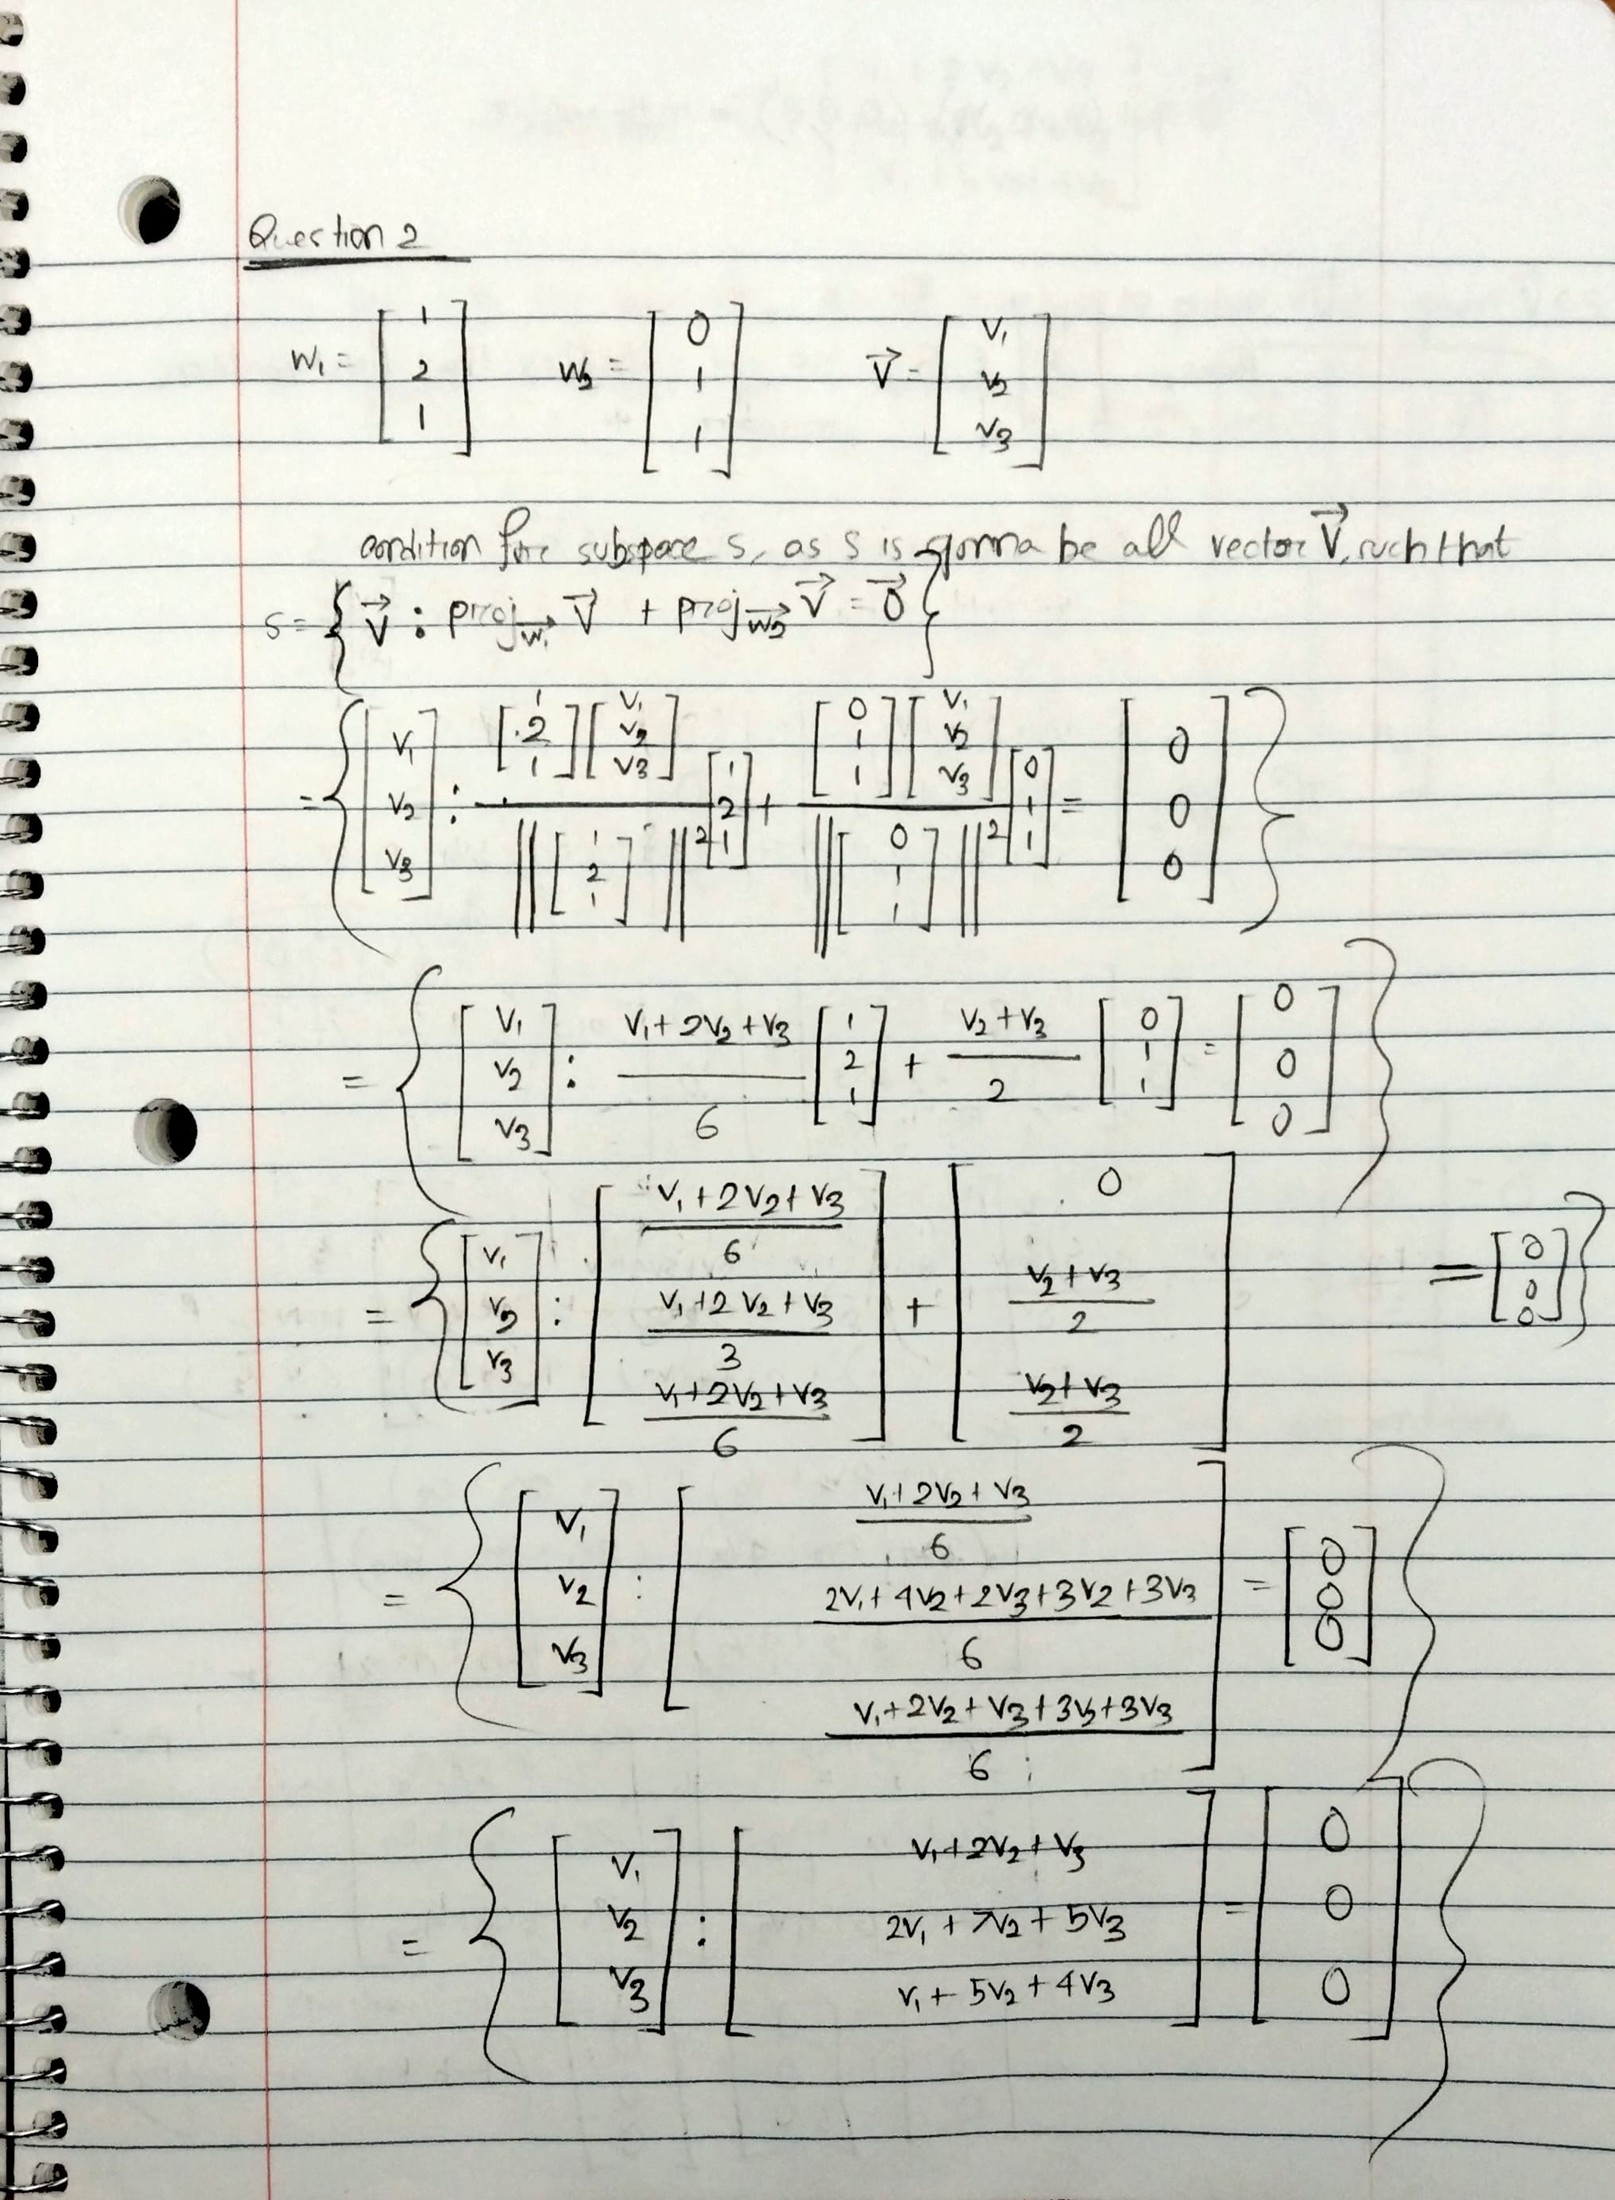 Question 2
w₁ = [1 2 1] w₂ = [0 1 1] v⃗ = [v₁ v₂ v₃]
condition for subspace s, as s is gonna be all vector v⃗, such that
s = { v⃗ : proj_w₁⃗ v⃗ + proj_w₂⃗ v⃗ = 0⃗ }
= { [v₁ v₂ v₃] : [1 2 1][v₁ v₂ v₃] / ||[1 2 1]||² [1 2 1] + [0 1 1][v₁ v₂ v₃] / ||[0 1 1]||² [0 1 1] = [0 0 0] }
= { [v₁ v₂ v₃] : (v₁ + 2v₂ + v₃)/6 [1 2 1] + (v₂ + v₃)/2 [0 1 1] = [0 0 0] }
= { [v₁ v₂ v₃] : [(v₁ + 2v₂ + v₃)/6 (v₁ + 2v₂ + v₃)/3 (v₁ + 2v₂ + v₃)/6] + [0 (v₂ + v₃)/2 (v₂ + v₃)/2] = [0 0 0] }
= { [v₁ v₂ v₃] : [(v₁ + 2v₂ + v₃)/6 (2v₁ + 4v₂ + 2v₃ + 3v₂ + 3v₃)/6 (v₁ + 2v₂ + v₃ + 3v₂ + 3v₃)/6] = [0 0 0] }
= { [v₁ v₂ v₃] : [v₁ + 2v₂ + v₃ 2v₁ + 7v₂ + 5v₃ v₁ + 5v₂ + 4v₃] = [0 0 0] }